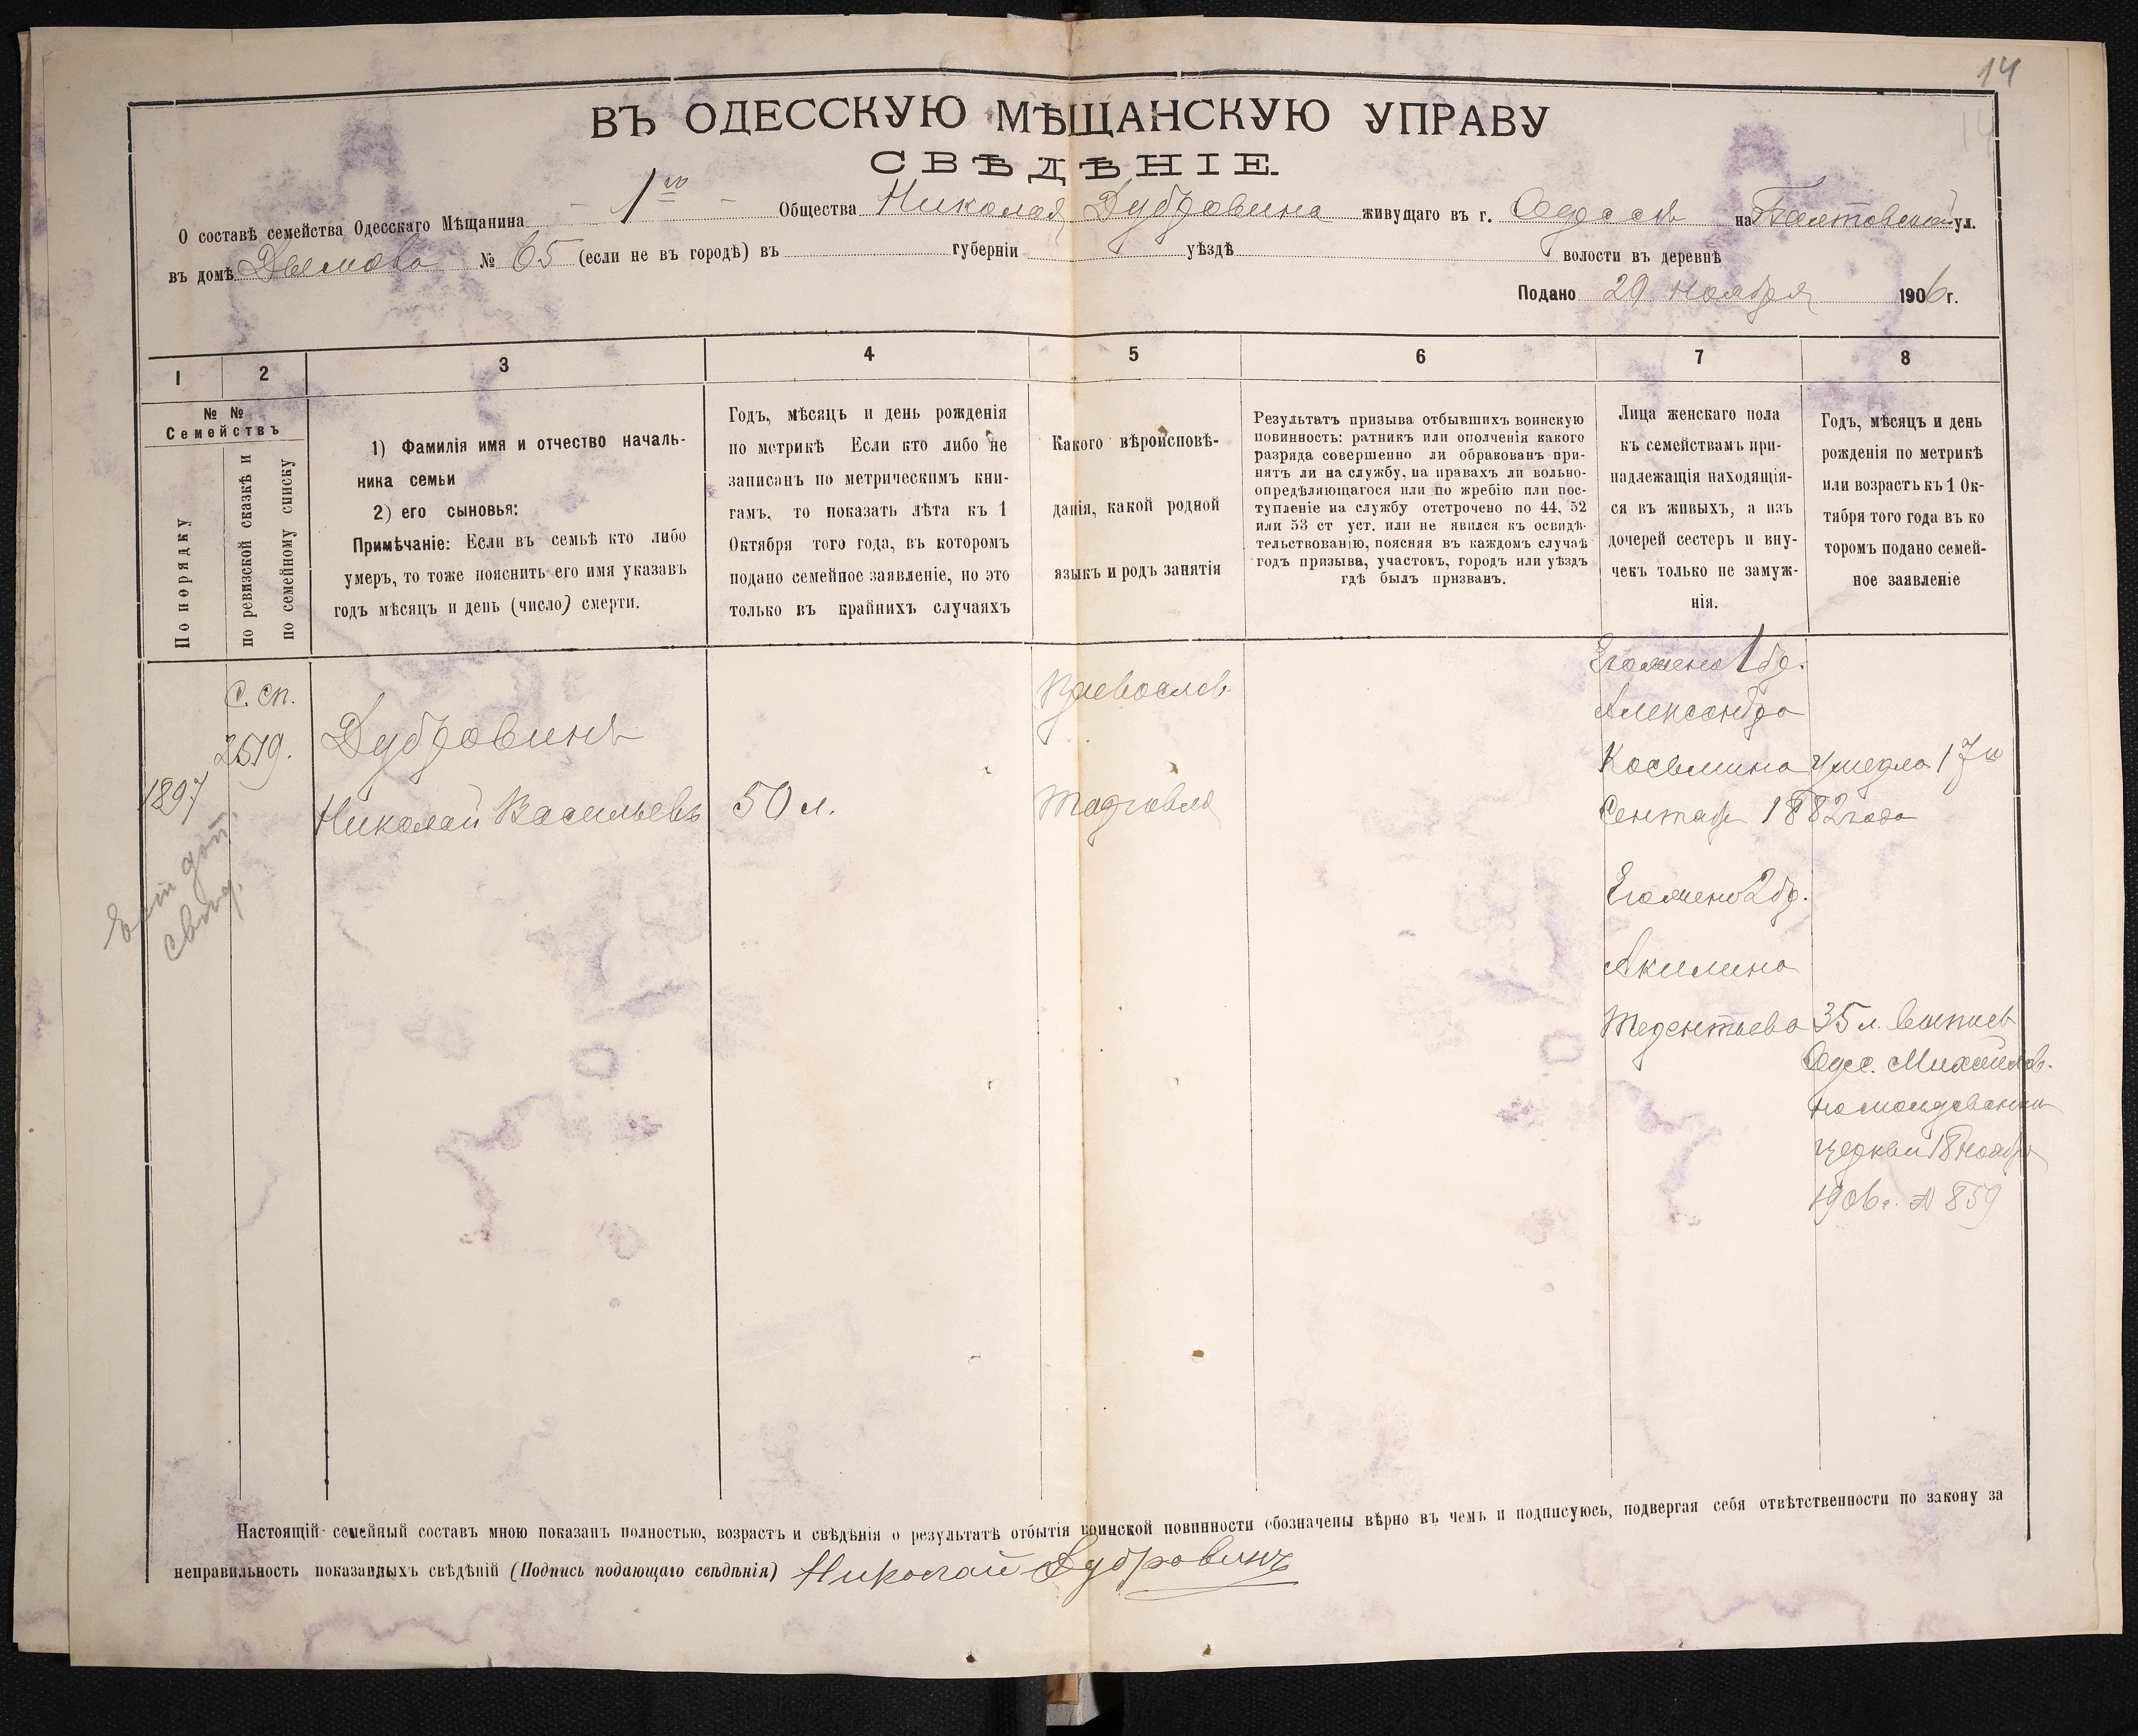 14
ВЪ ОДЕССКУЮ МѢЩАНСКУЮ УПРАВУ
СВѢДѢНІЕ.
О составѣ семейства Одесскаго Мѣщанина - 1го - Общества Николая Дубровина живущаго въ г. Одессѣ на Балтовской ул.
въ домѣ Дымова № 65 (если не въ городѣ) въ губерніи уѣздѣ волости въ деревнѣ
Подано 29 ноября 1906 г.
1 2 3 4 5 6 7 8
№ №
Семействъ
По порядку
по ревизской сказкѣ и
по семейному списку
1) Фамилія имя и отчество началь-
ника семьи
2) его сыновья:
Примѣчаніе: Если въ семьѣ кто либо
умеръ, то тоже пояснить его имя указавъ
годъ мѣсяцъ и день (число) смерти.
Годъ, мѣсяцъ и день рожденія
по метрикѣ Если кто либо не
записанъ по метрическимъ кни-
гамъ, то показать лѣта къ 1
Октября того года, въ которомъ
подано семейное заявленіе, но это
только въ крайнихъ случаяхъ
Какого вѣроисповѣ-
данія, какой родной
языкъ и родъ занятія
Результатъ призыва отбывшихъ воинскую
повинность: ратникъ или ополченія какого
разряда совершенно ли обракованъ при-
нятъ ли на службу, на правахъ ли вольно-
опредѣляющагося или по жребію или пос-
тупленіе на службу отстрочено по 44, 52
или 53 ст уст. или не явился къ освидѣ-
тельствованію, поясняя въ каждомъ случаѣ
годъ призыва, участокъ, городъ или уѣздъ
гдѣ былъ призванъ.
Лица женскаго пола
къ семействамъ при-
надлежащія находящія-
ся въ живыхъ, а изъ
дочерей сестеръ и вну-
чекъ только не замуж-
нія.
Годъ, мѣсяцъ и день
рожденія по метрикѣ
или возрастъ къ 1 Ок-
тября того года въ ко
торомъ подано семей-
ное заявленіе
1897
С. сп.
2519.
Дубровинъ
Николай Васильевъ
50 л.
Православ.
торговля
Его жена 1 бр.
Александра
Косьмина умерла 17го
Сентяб 1882 года
Его жена 2 бр.
Акилина
Терентьева 35 л. выпись
Одес. Михайлов.
церкви 18 Ноября
1906 г. № 859
Настоящій семейный составъ мною показанъ полностью, возрастъ и свѣдѣнія о результатѣ отбытія воинской повинности обозначены вѣрно въ чемъ и подписуюсь, подвергая себя отвѣтственности по закону за
неправильность показанныхъ свѣдѣній (Подпись подающаго свѣдѣнія) Николай Дубровинъ